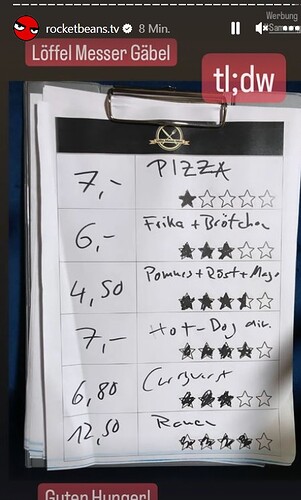 rocketbeans.tv 8 Min.
Werbung
Löffel Messer Gäbel
tl;dw
7,- PIZZA
6,- Frika + Brötchen
4,50 Pommes + Röst + Mayo
7,- Hot-Dog div.
6,80 Currywurst
12,50 Ramen
Guten Hunger!